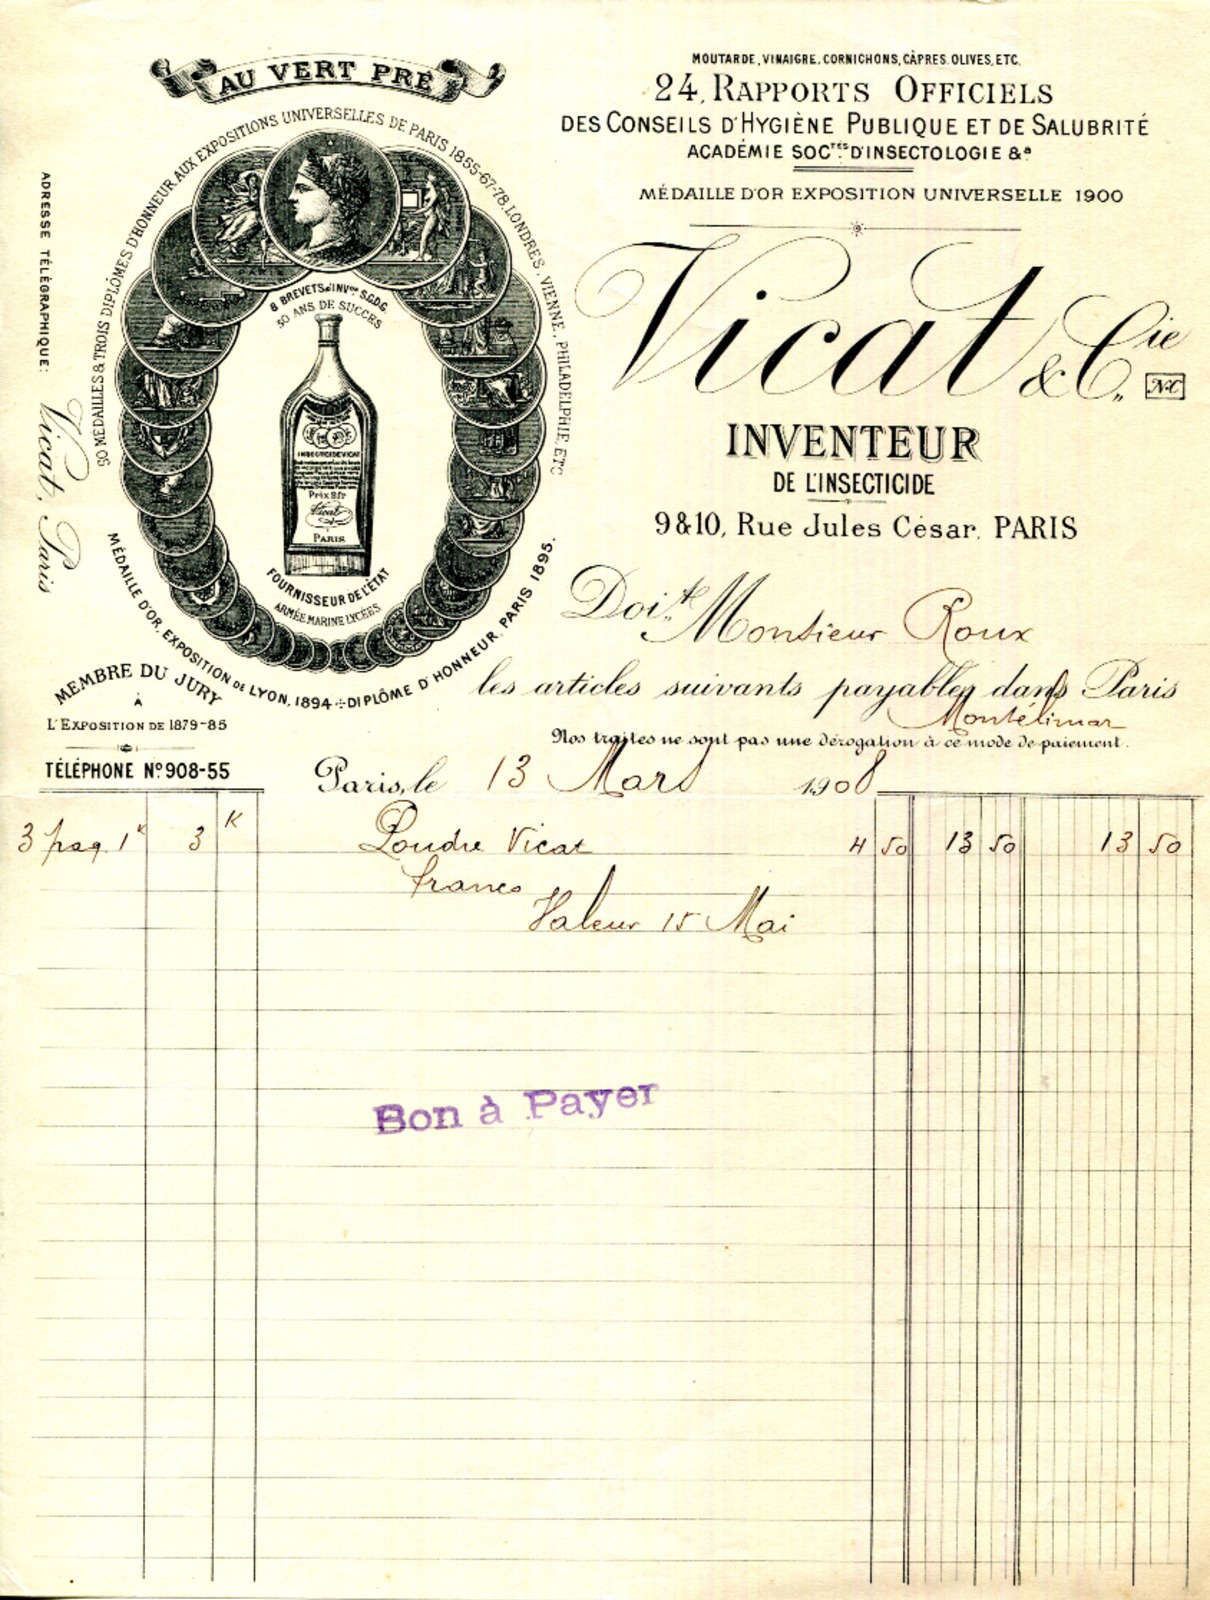 AU VERT PRÉ
50 MÉDAILLES & TROIS DIPLÔMES D'HONNEUR AUX EXPOSITIONS UNIVERSELLES DE PARIS 1855-67-78, LONDRES, VIENNE, PHILADELPHIE, ETC
8 BREVETS d'INVon S.G.D.G.
50 ANS DE SUCCÈS
INSECTICIDE VICAT
Prix 8fr
Vicat
PARIS
FOURNISSEUR DE L'ÉTAT
ARMÉE MARINE LYCÉES
MÉDAILLE D'OR, EXPOSITION DE LYON, 1894 - DIPLÔME D'HONNEUR, PARIS 1895.
ADRESSE TÉLÉGRAPHIQUE:
Vicat, Paris
MEMBRE DU JURY
À
L'EXPOSITION DE 1879-85
TÉLÉPHONE No 908-55
MOUTARDE, VINAIGRE, CORNICHONS, CÂPRES, OLIVES, ETC.
24, RAPPORTS OFFICIELS
DES CONSEILS D'HYGIÈNE PUBLIQUE ET DE SALUBRITÉ
ACADÉMIE SOCTÉS D'INSECTOLOGIE &a
MÉDAILLE D'OR EXPOSITION UNIVERSELLE 1900
Vicat & Cie
N.C
INVENTEUR
DE L'INSECTICIDE
9 & 10, Rue Jules César, PARIS
Doit Monsieur Roux
les articles suivants payables dans Paris
Montélimar
Nos traites ne sont pas une dérogation à ce mode de paiement.
Paris, le 13 Mars 1908
3 paq. 1k 3 K Poudre Vicat 4 50 13 50 13 50
franco
Valeur 15 Mai
Bon à Payer